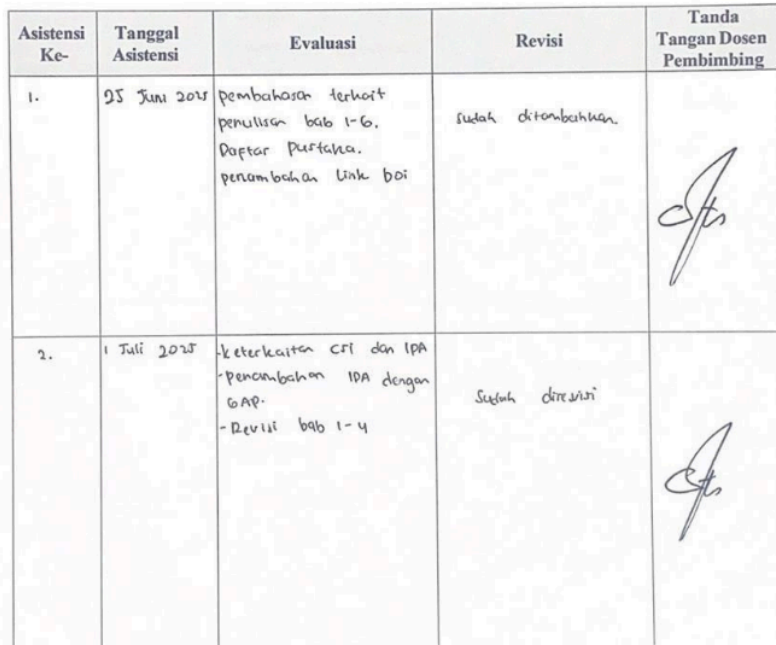 Asistensi Ke-
Tanggal Asistensi
Evaluasi
Revisi
Tanda Tangan Dosen Pembimbing
1.
25 Juni 2025
pembahasan terkait
penulisan bab 1-6.
Daftar Pustaka.
penambahan Link boi
sudah ditambahkan.
2.
1 Juli 2025
-keterkaitan CSI dan IPA
-penambahan IPA dengan
GAP.
-Revisi bab 1-4
Sudah direvisi